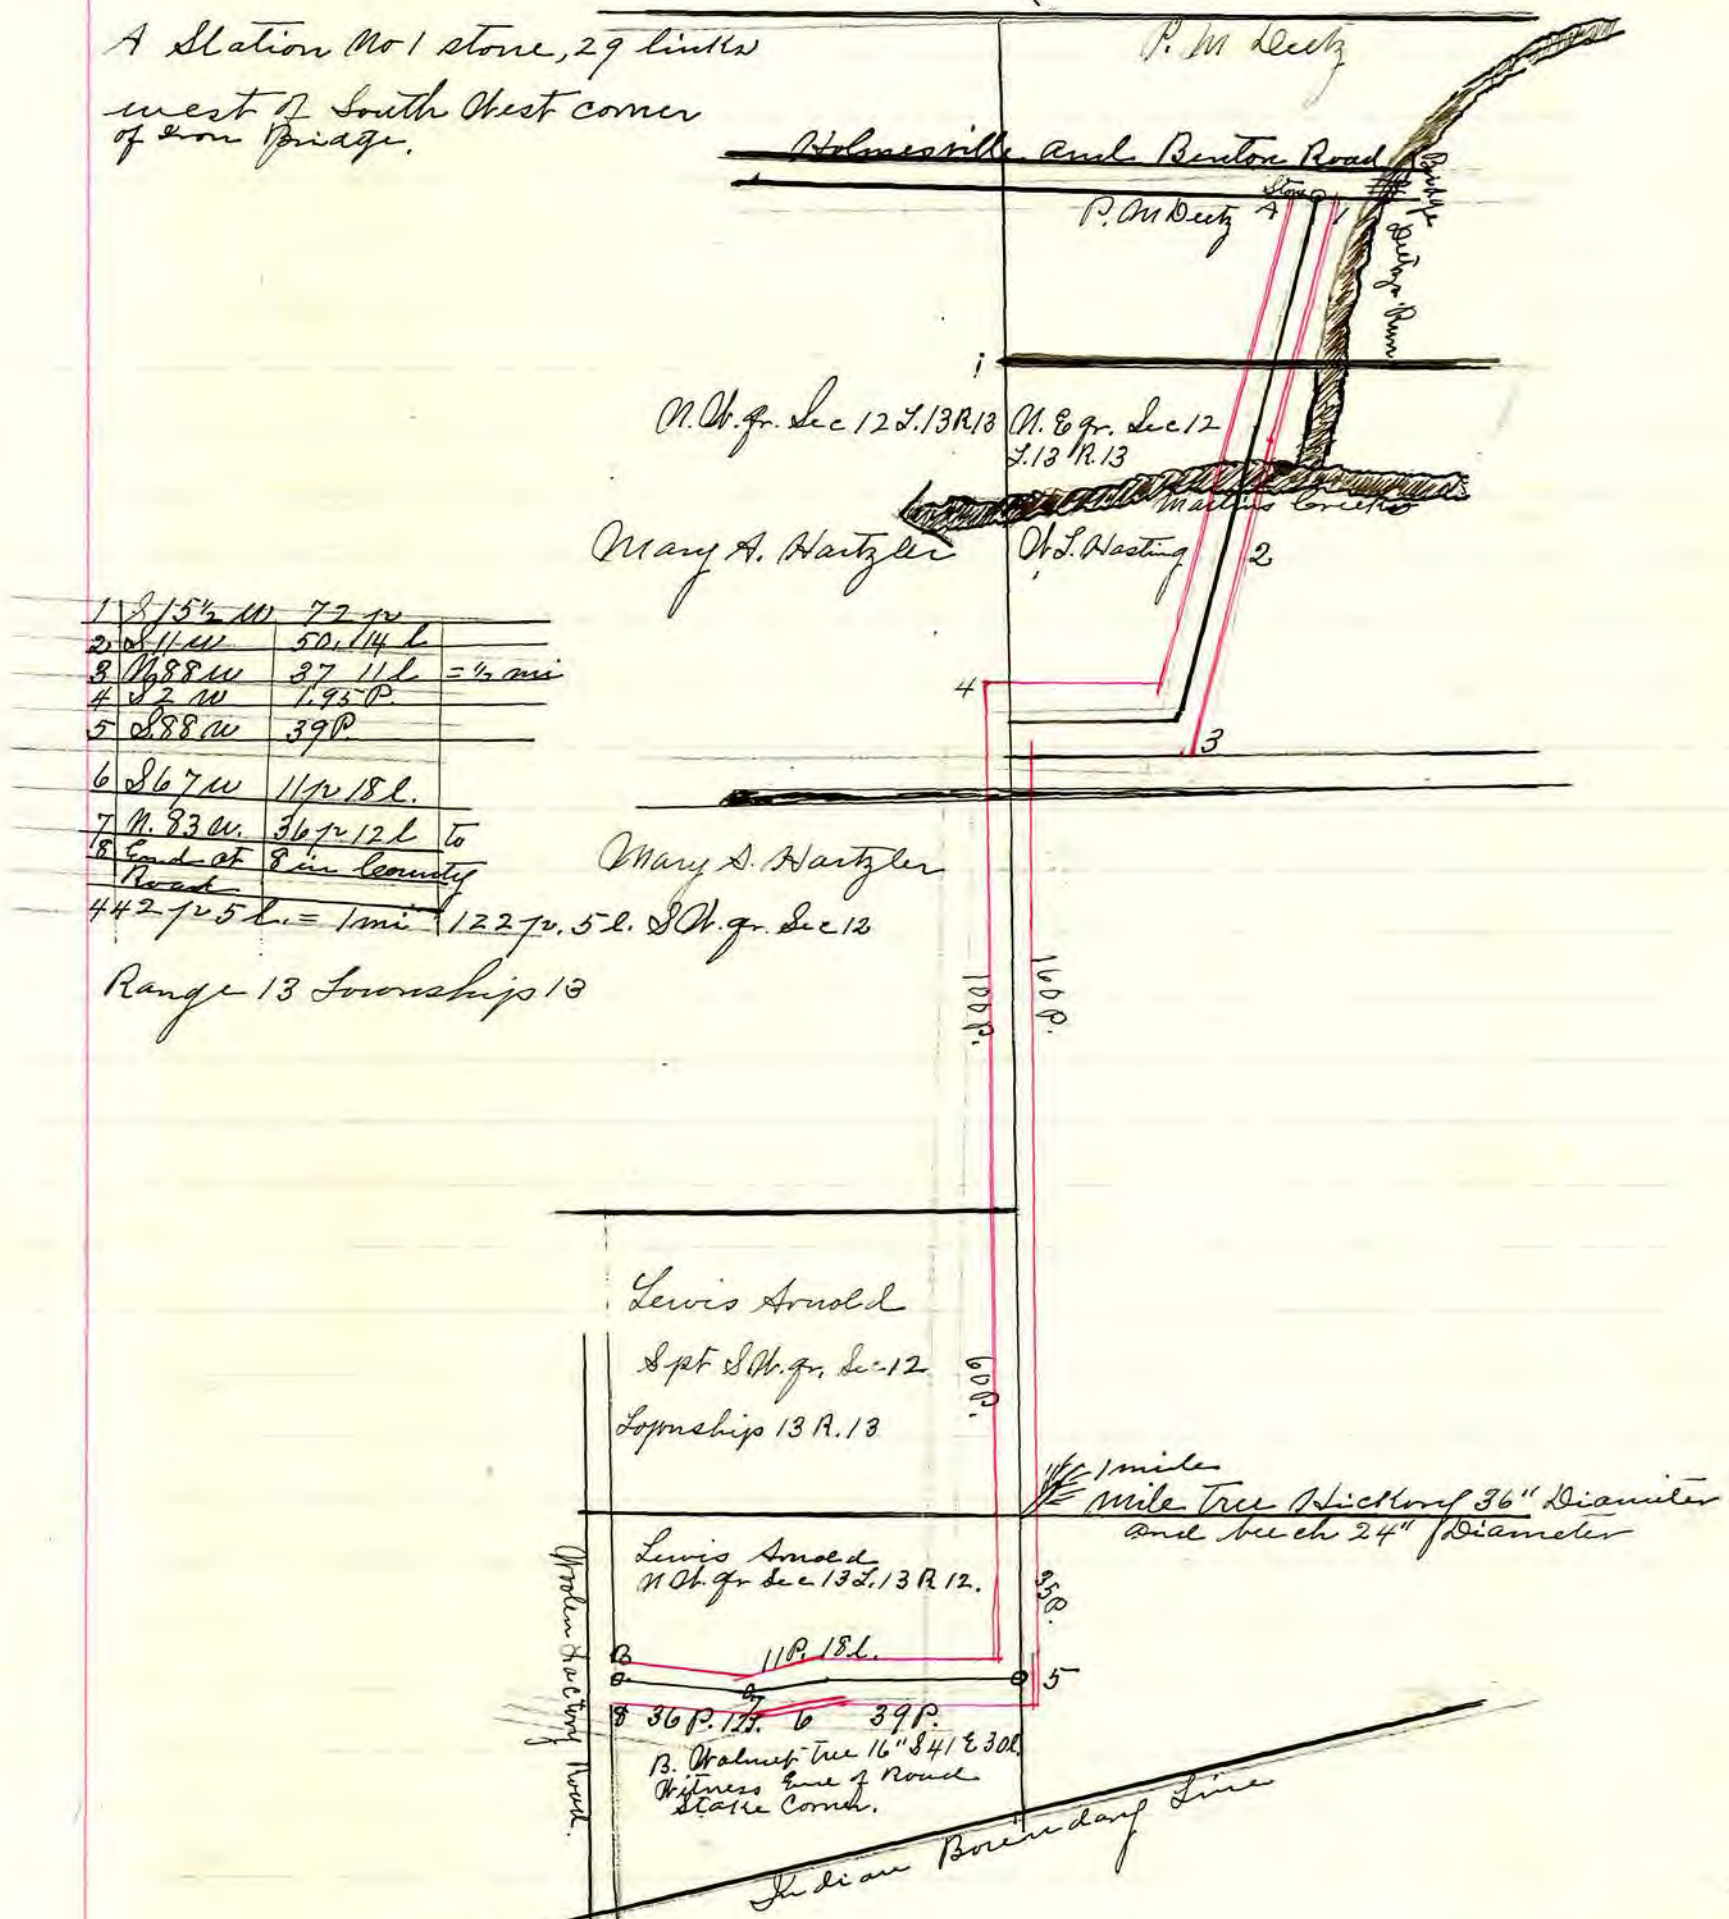 A Station No 1 stone, 29 links
west of South West corner
of Iron Bridge.
P. M Deetz
Holmesville and Benton Road
Bridge
Stone
P. M Deetz A 1
Deetz Run
1
N. W. qr. Sec 12 T. 13 R 13
N. E qr. Sec 12
T. 13 R. 13
Martins Creek
Mary A. Hartzler
W. L. Hasting
2
1 S 15½ W 72 p
2 S 11 W 50, 14 l
3 N 88 W 37 11 l = ½ mi
4 S 2 W 1.95 P.
5 S. 88 W 39 P.
6 S 67 W 11 p 18 l.
7 N. 83 W. 36 p 12 l to
8 End at 8 in County
Road
442 p 5 l. = 1 mi 122 p. 5 l. S W. qr. Sec 12
Range 13 Township 13
4
3
Mary A. Hartzler
100 P.
160 P.
Lewis Arnold
S pt S W. qr. Sec 12
Township 13 R. 13
60 P.
1 mile
mile Tree Hickory 36" Diameter
and beech 24" Diameter
Lewis Arnold
N W. qr Sec 13 T. 13 R 12.
35 P.
Woolen Factory Road.
B 11 P. 18 l.
7
5
8 36 P. 12 l. 6 39 P.
B. Walnut Tree 16" S 41 E 30 l.
Witness End of Road
Stake Corner.
Indian Bounndary Line